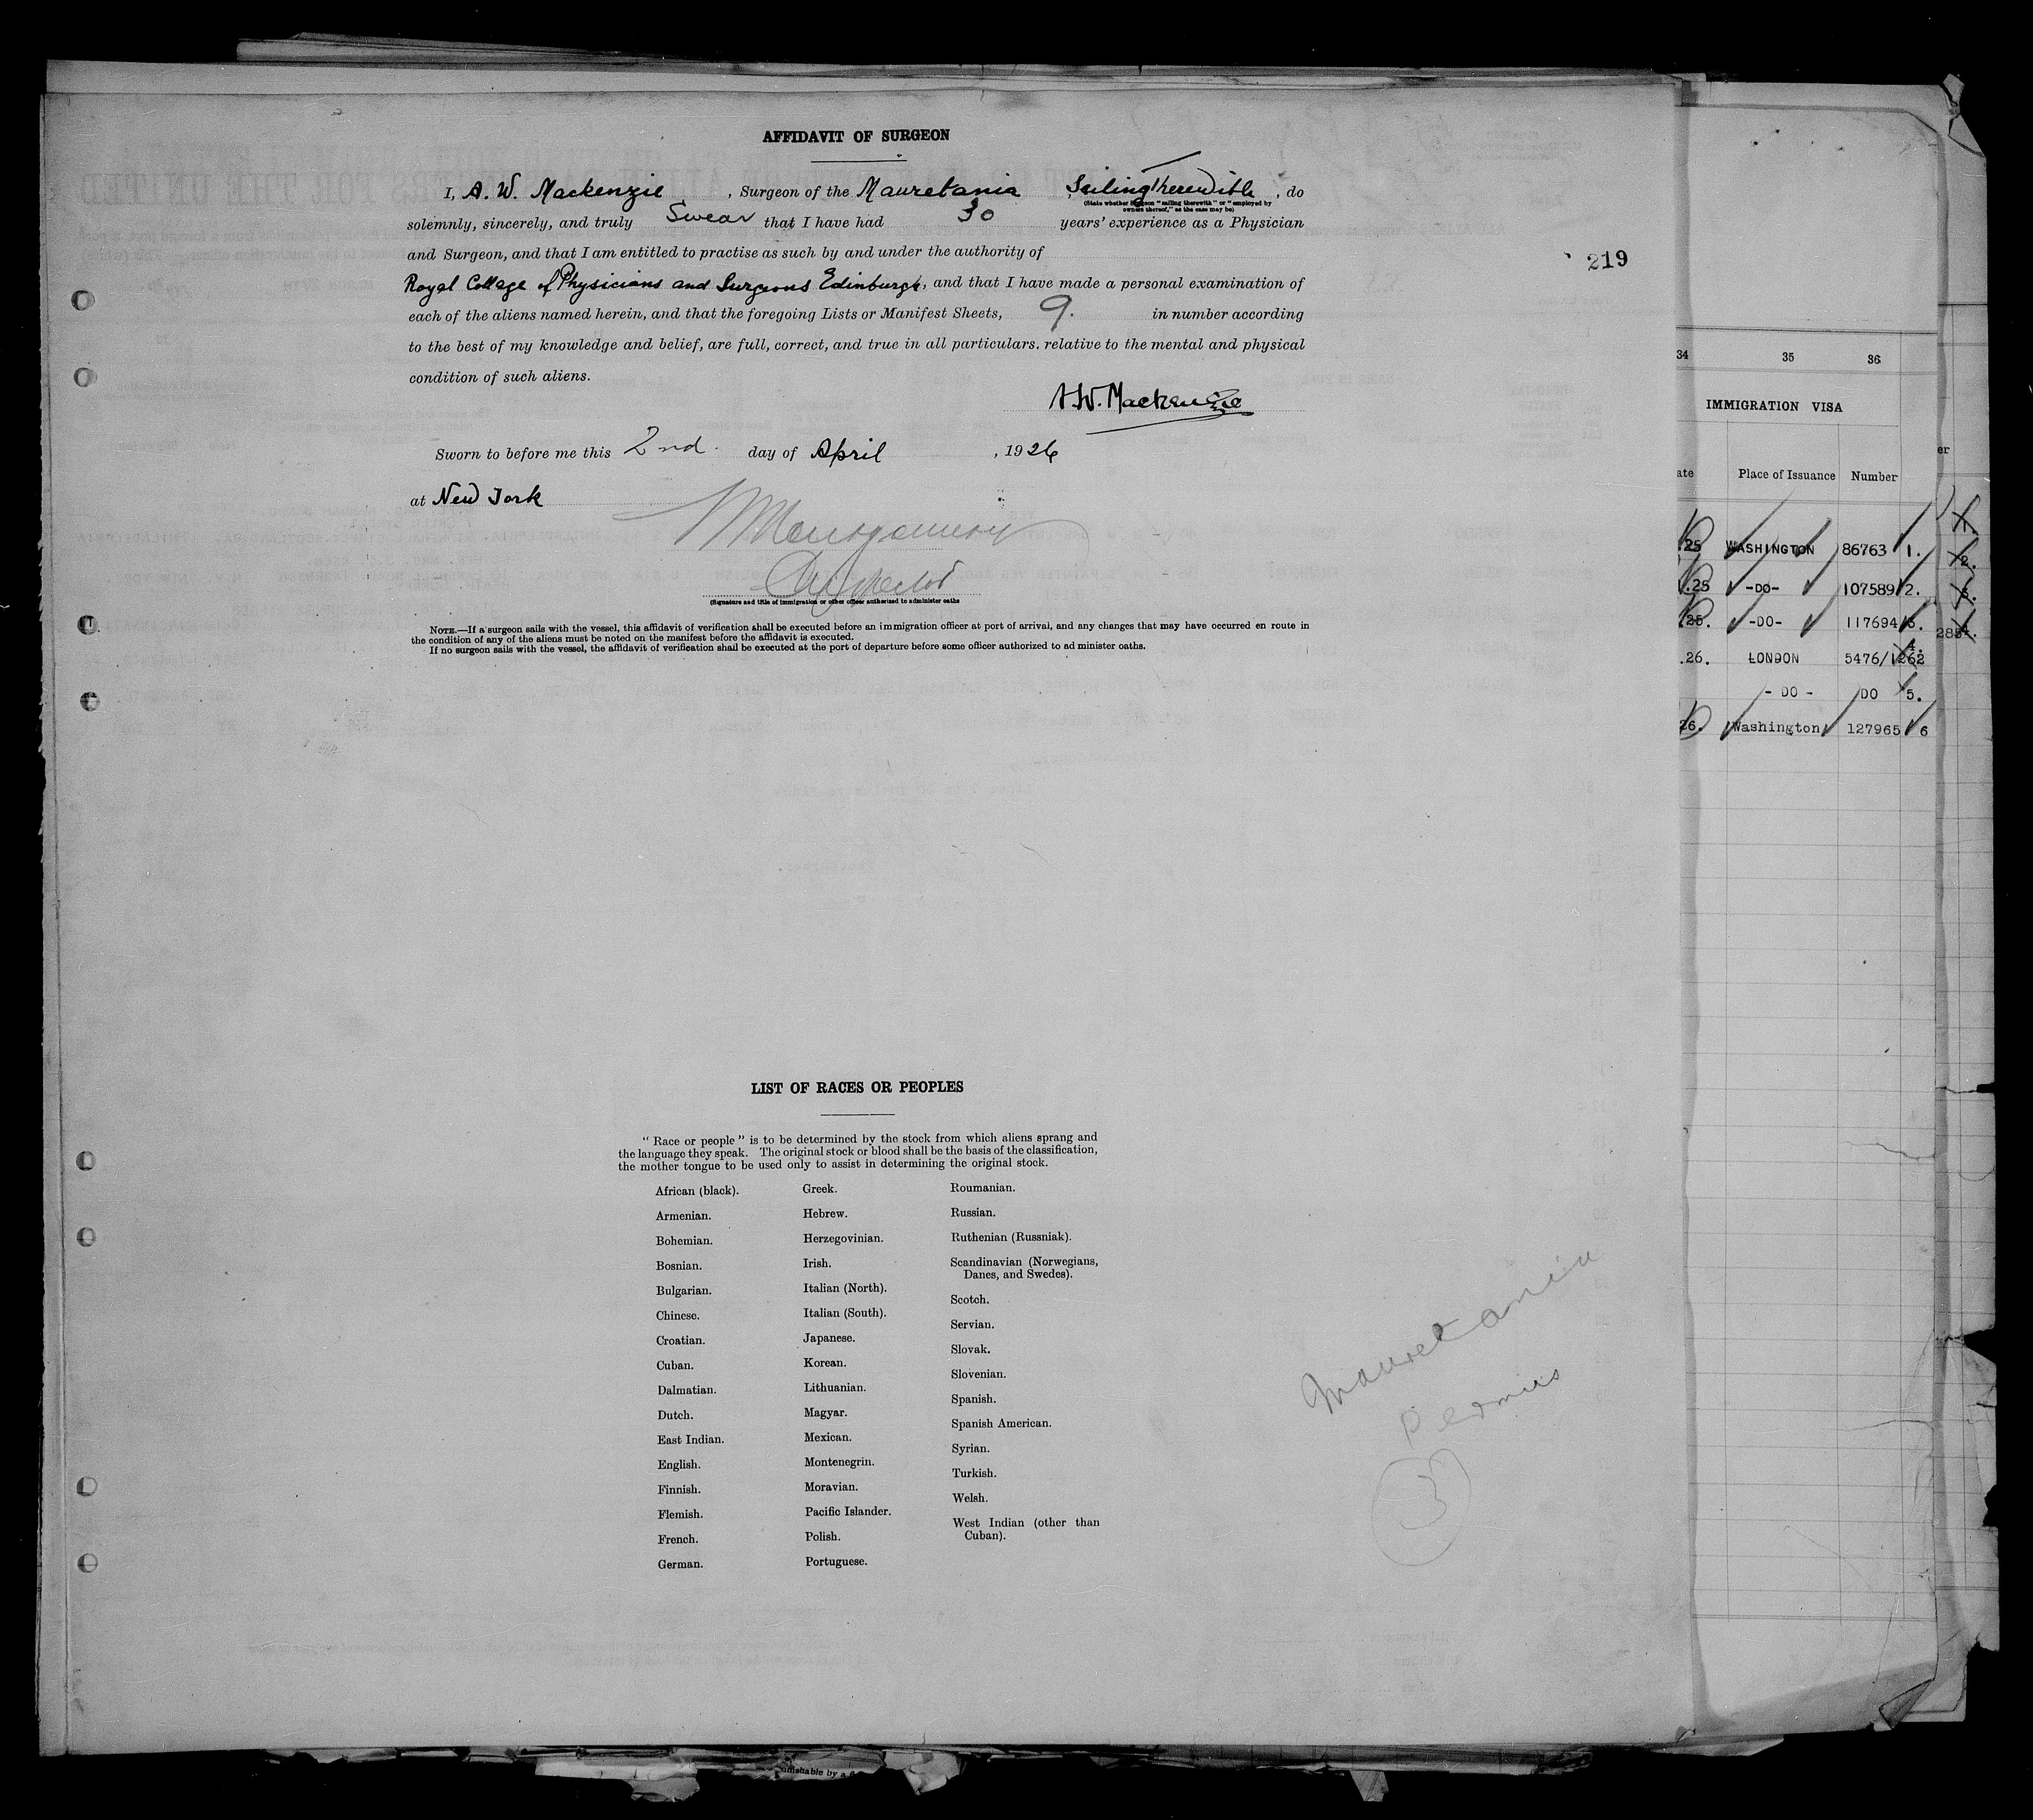 AFFIDAVIT OF SURGEON
I, A. W. Mackenzie, Surgeon of the Mauretania, Sailing Therewith, do
(State whether Surgeon "sailing therewith" or "employed by
owners thereof," as the case may be)
solemnly, sincerely, and truly Swear that I have had 30 years' experience as a Physician
and Surgeon, and that I am entitled to practise as such by and under the authority of
219
Royal College of Physicians and Surgeons Edinburgh, and that I have made a personal examination of
each of the aliens named herein, and that the foregoing Lists or Manifest Sheets, 9. in number according
to the best of my knowledge and belief, are full, correct, and true in all particulars. relative to the mental and physical
condition of such aliens.
A.W. Mackenzie
Sworn to before me this 2nd. day of April, 1926
at New York
Montgomery
Inspector
(Signature and title of immigration or other officer authorized to administer oaths
NOTE.—If a surgeon sails with the vessel, this affidavit of verification shall be executed before an immigration officer at port of arrival, and any changes that may have occurred en route in
the condition of any of the aliens must be noted on the manifest before the affidavit is executed.
If no surgeon sails with the vessel, the affidavit of verification shall be executed at the port of departure before some officer authorized to ad minister oaths.
LIST OF RACES OR PEOPLES
"Race or people" is to be determined by the stock from which aliens sprang and
the language they speak. The original stock or blood shall be the basis of the classification,
the mother tongue to be used only to assist in determining the original stock.
African (black).
Armenian.
Bohemian.
Bosnian.
Bulgarian.
Chinese.
Croatian.
Cuban.
Dalmatian.
Dutch.
East Indian.
English.
Finnish.
Flemish.
French.
German.
Greek.
Hebrew.
Herzegovinian.
Irish.
Italian (North).
Italian (South).
Japanese.
Korean.
Lithuanian.
Magyar.
Mexican.
Montenegrin.
Moravian.
Pacific Islander.
Polish.
Portuguese.
Roumanian.
Russian.
Ruthenian (Russniak).
Scandinavian (Norwegians,
Danes, and Swedes).
Scotch.
Servian.
Slovak.
Slovenian.
Spanish.
Spanish American.
Syrian.
Turkish.
Welsh.
West Indian (other than
Cuban).
Mauretania
3
34 35 36
IMMIGRATION VISA
ate Place of Issuance Number
.25 WASHINGTON 86763 1.
.25 -DO- 107589 2.
.25. -DO- 117694 3.
.26. LONDON 5476/1262 4.
- DO - DO 5.
26. Washington 127965 6
er
1.
2.
3.
4.